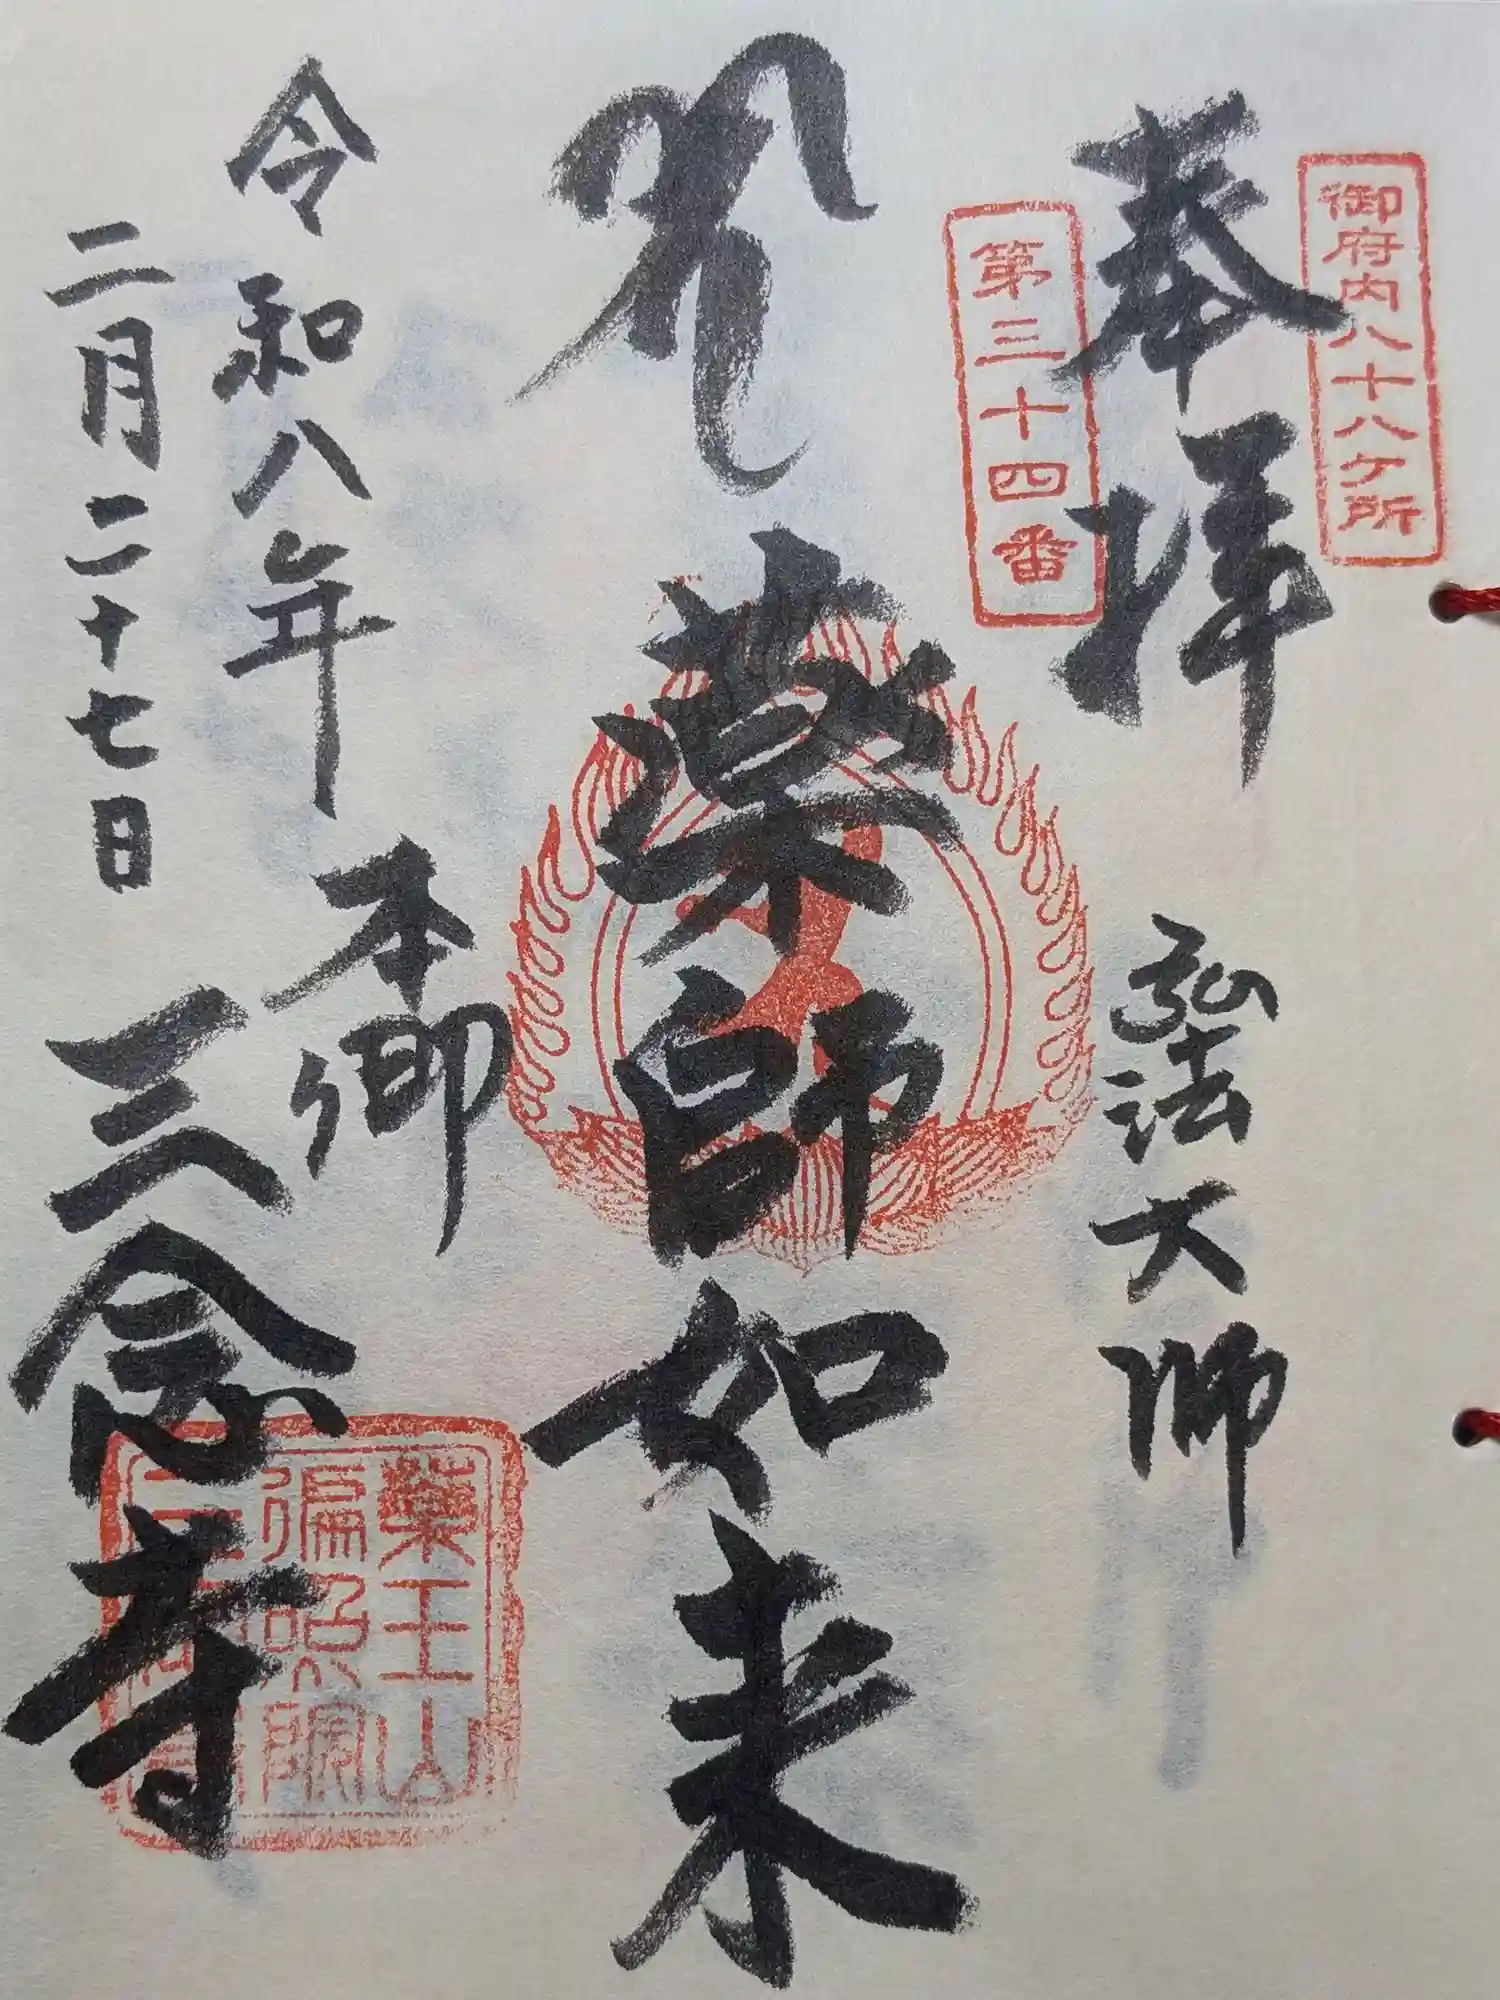 御府内八十八ケ所
奉拝
弘法大師
第三十四番
薬師如来
令和八年
二月二十七日
本郷
三念寺
薬王山
遍照院